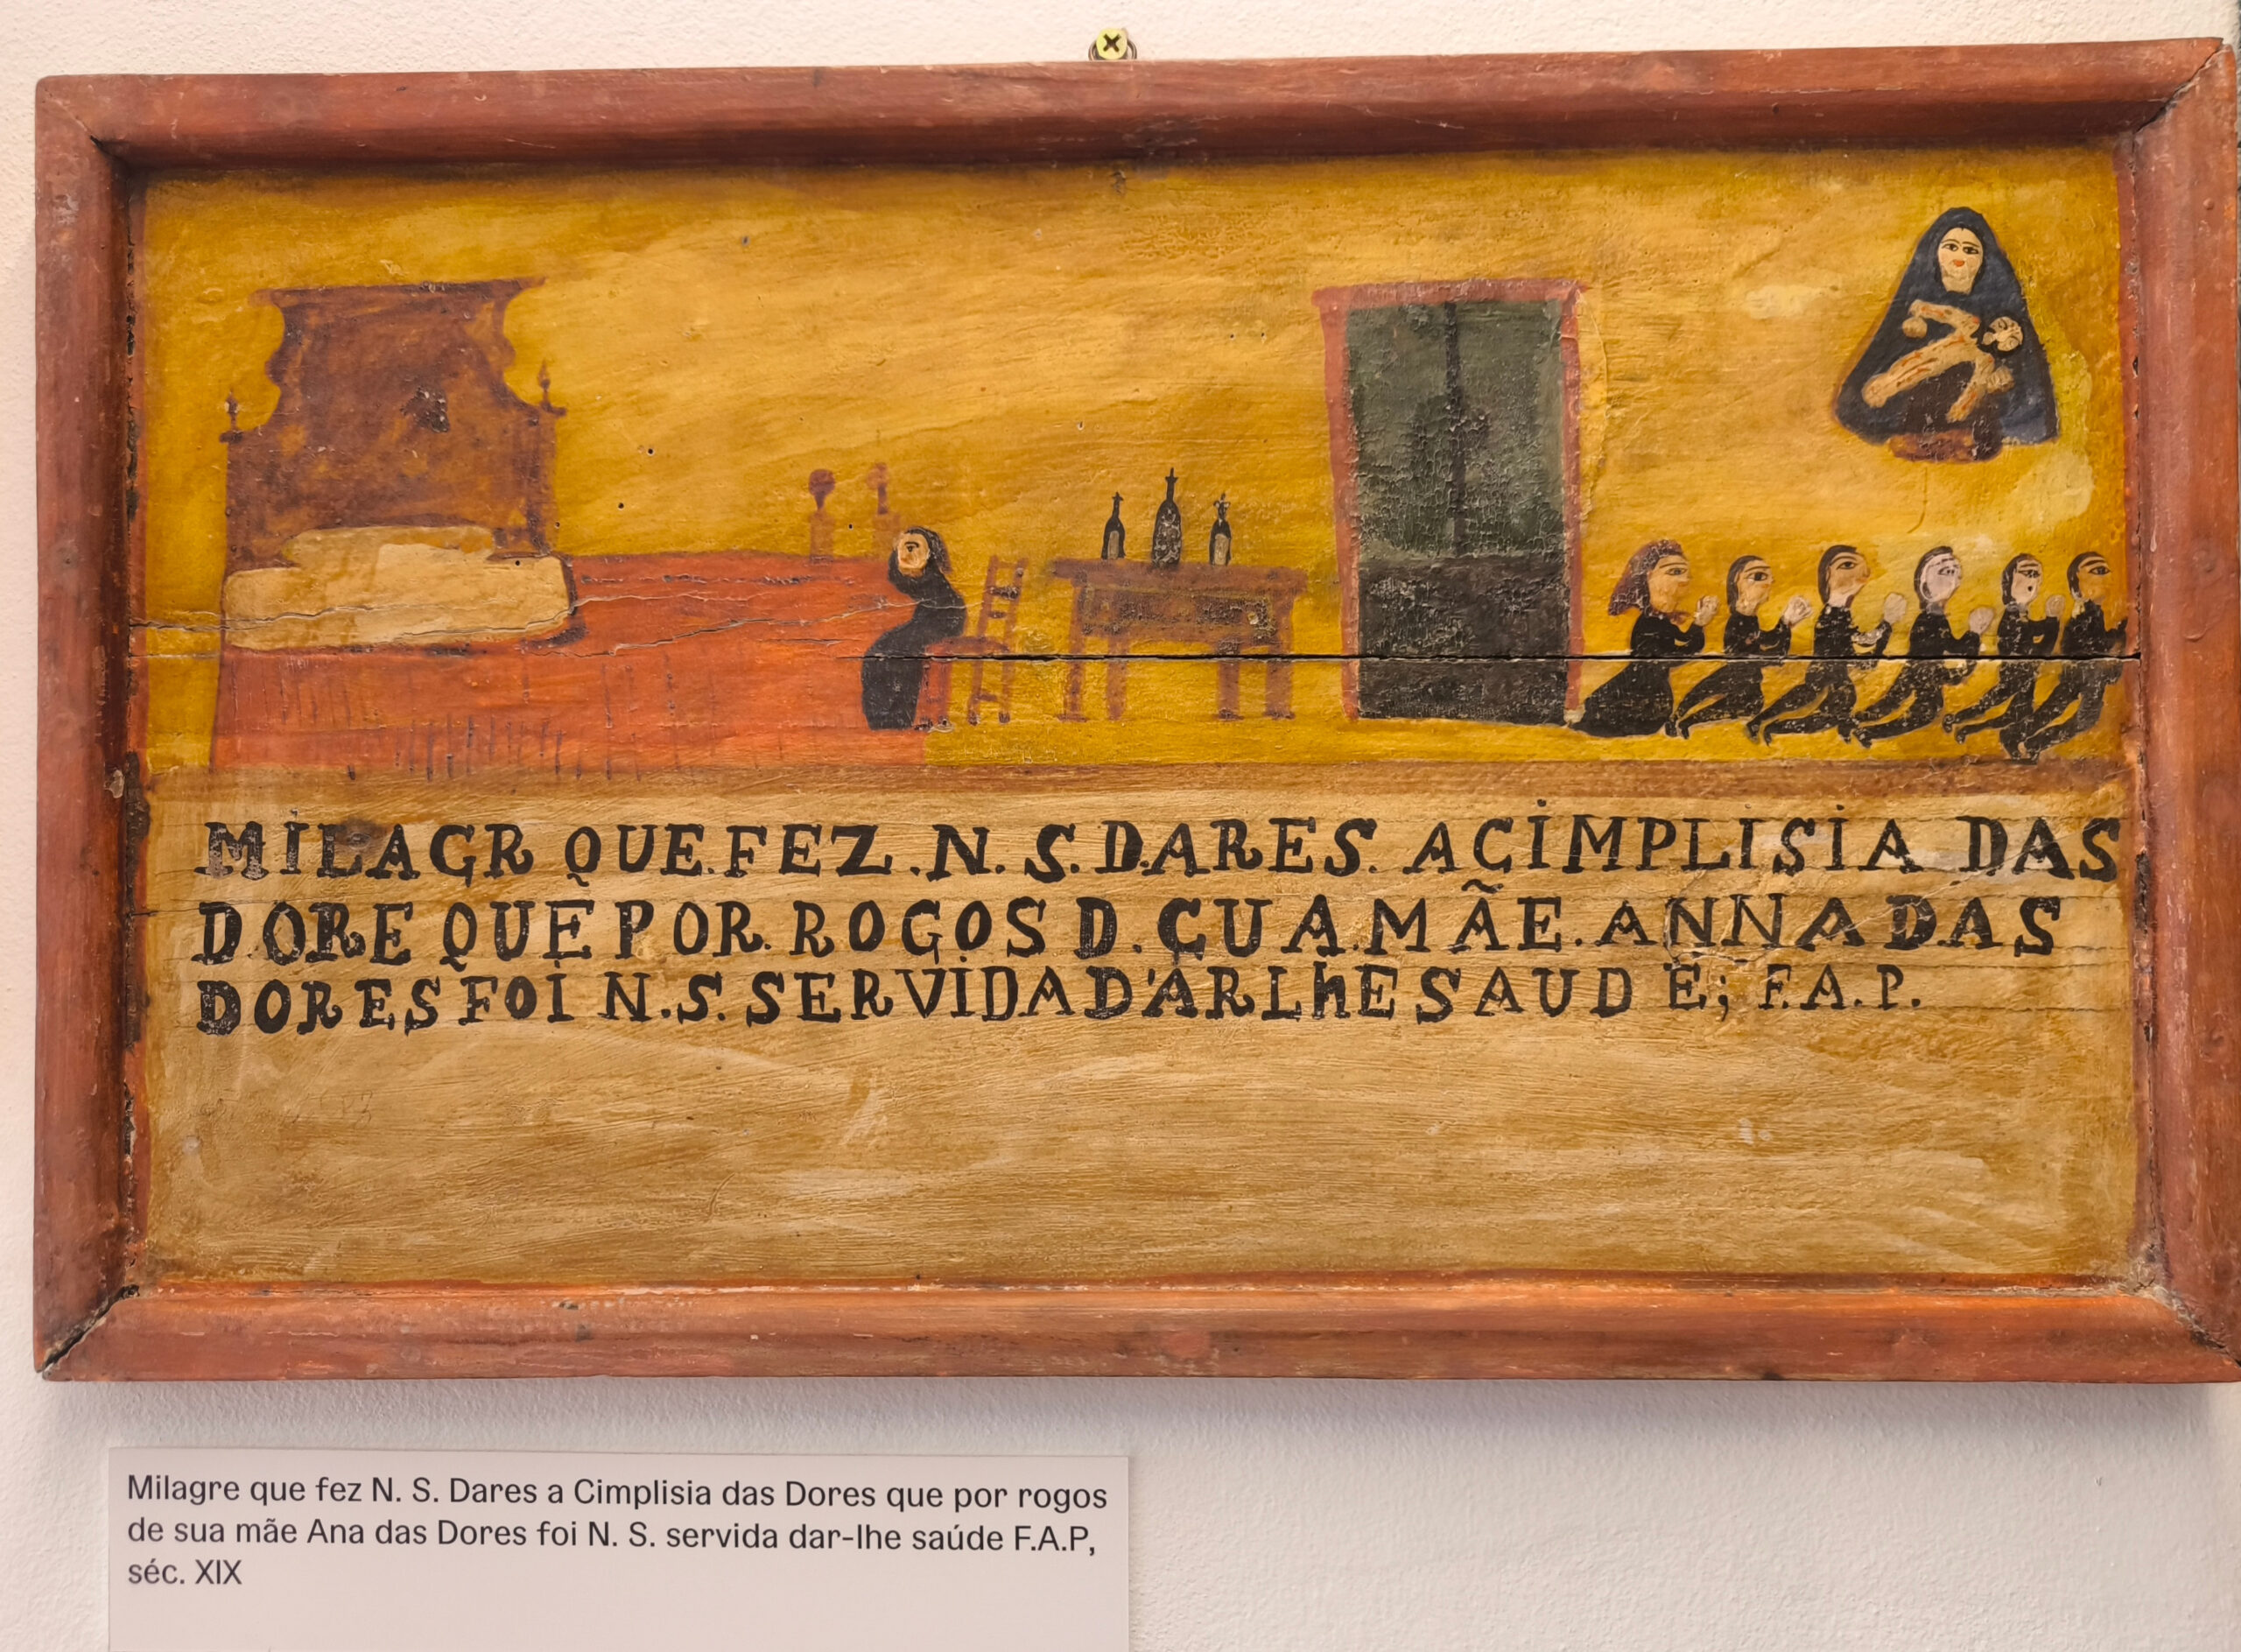 MILAGR QUE.FEZ.N.S.DARES. A CIMPLISIA DAS
DORE QUE POR.ROGOS D.CUA.MÃE.ANNA DAS
DORES FOI N.S. SERVIDA D'ARLhE SAUDE; F.A.P.
Milagre que fez N. S. Dares a Cimplisia das Dores que por rogos
de sua mãe Ana das Dores foi N. S. servida dar-lhe saúde F.A.P,
séc. XIX